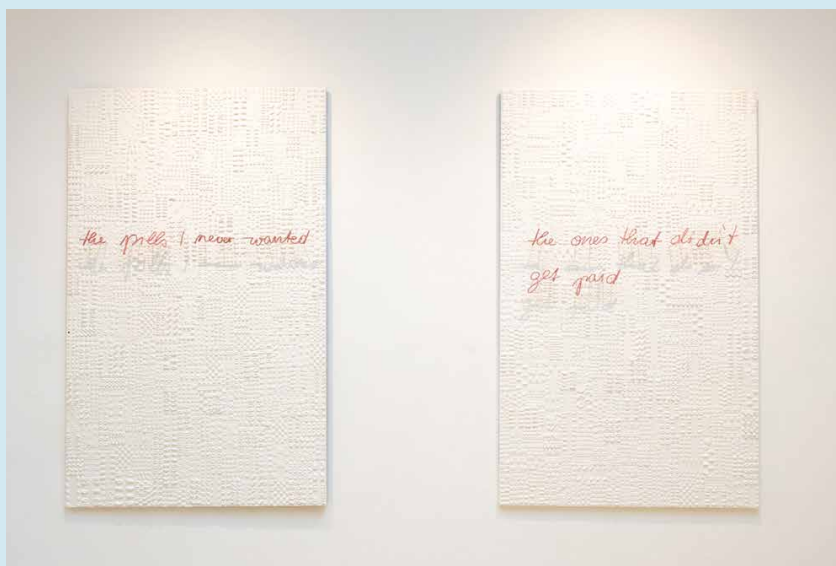 the pills I never wanted
the ones that didn't
get paid